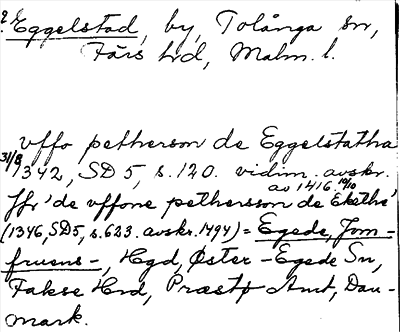 ? Eggelstad, by, Tolånga sn,
Färs hd, Malm. l.
uffo petherson de Eggelstatha
31/8 1342, SD 5, s. 120. vidim. avskr.
av 1416 19/10
Jfr 'de uffone pethersson de Ekethe'
(1346, SD5, s. 623. avskr. 1494) = Egede, Jom-
fruens-, Hgd, Øster-Egede Sn,
Fakse Hrd, Præstø Amt, Dan-
mark.